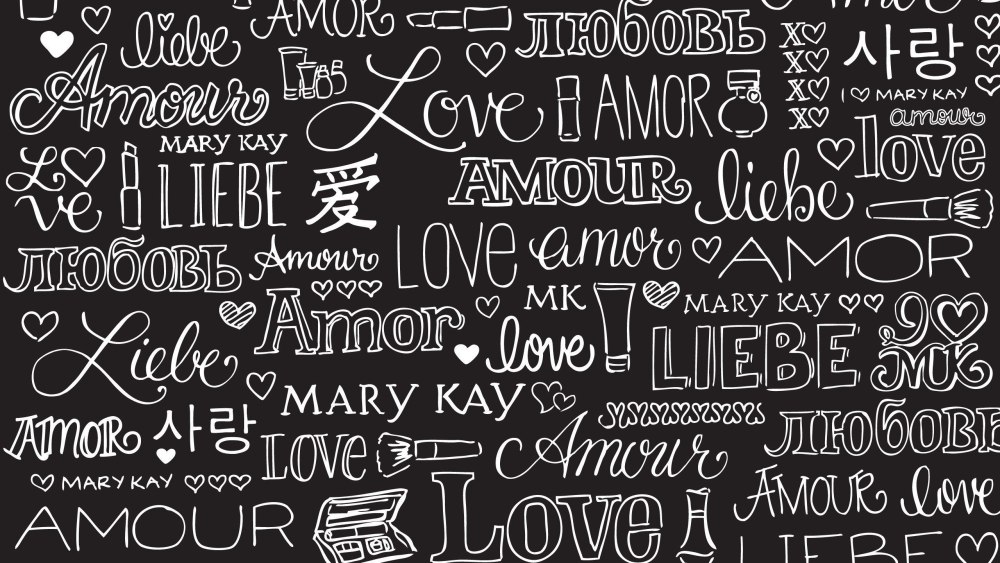 AMOR
любовь
liebe
X
X
X
X
사랑
Amour
Love
AMOR
I ♡ MARY KAY
amour
love
MARY KAY
Love
LIEBE
愛
AMOUR
liebe
любовь
Amour
LOVE
amor
AMOR
MK
MARY KAY
Amor
love
LIEBE
90
MK
Liebe
MARY KAY
AMOR
사랑
LOVE
Amour
любовь
MARY KAY
AMOUR
love
AMOUR
Love
LIEBE